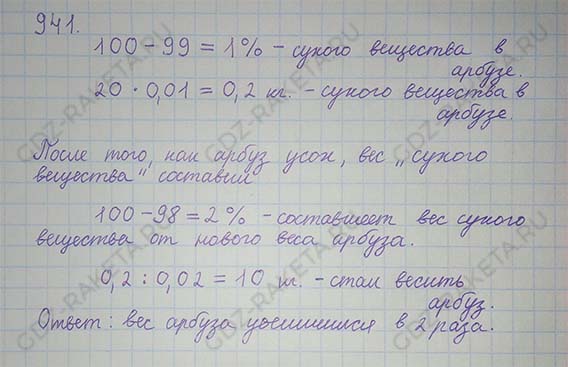 941.
100 - 99 = 1% - сухого вещества в
арбузе.
20 · 0,01 = 0,2 кг. - сухого вещества в
арбузе.
После того, как арбуз усох, вес „сухого
вещества" составил
100 - 98 = 2% - составляет вес сухого
вещества от нового веса арбуза.
0,2 : 0,02 = 10 кг. - стал весить
арбуз.
Ответ: вес арбуза уменьшился в 2 раза.
GDZ-RAKETA.RU